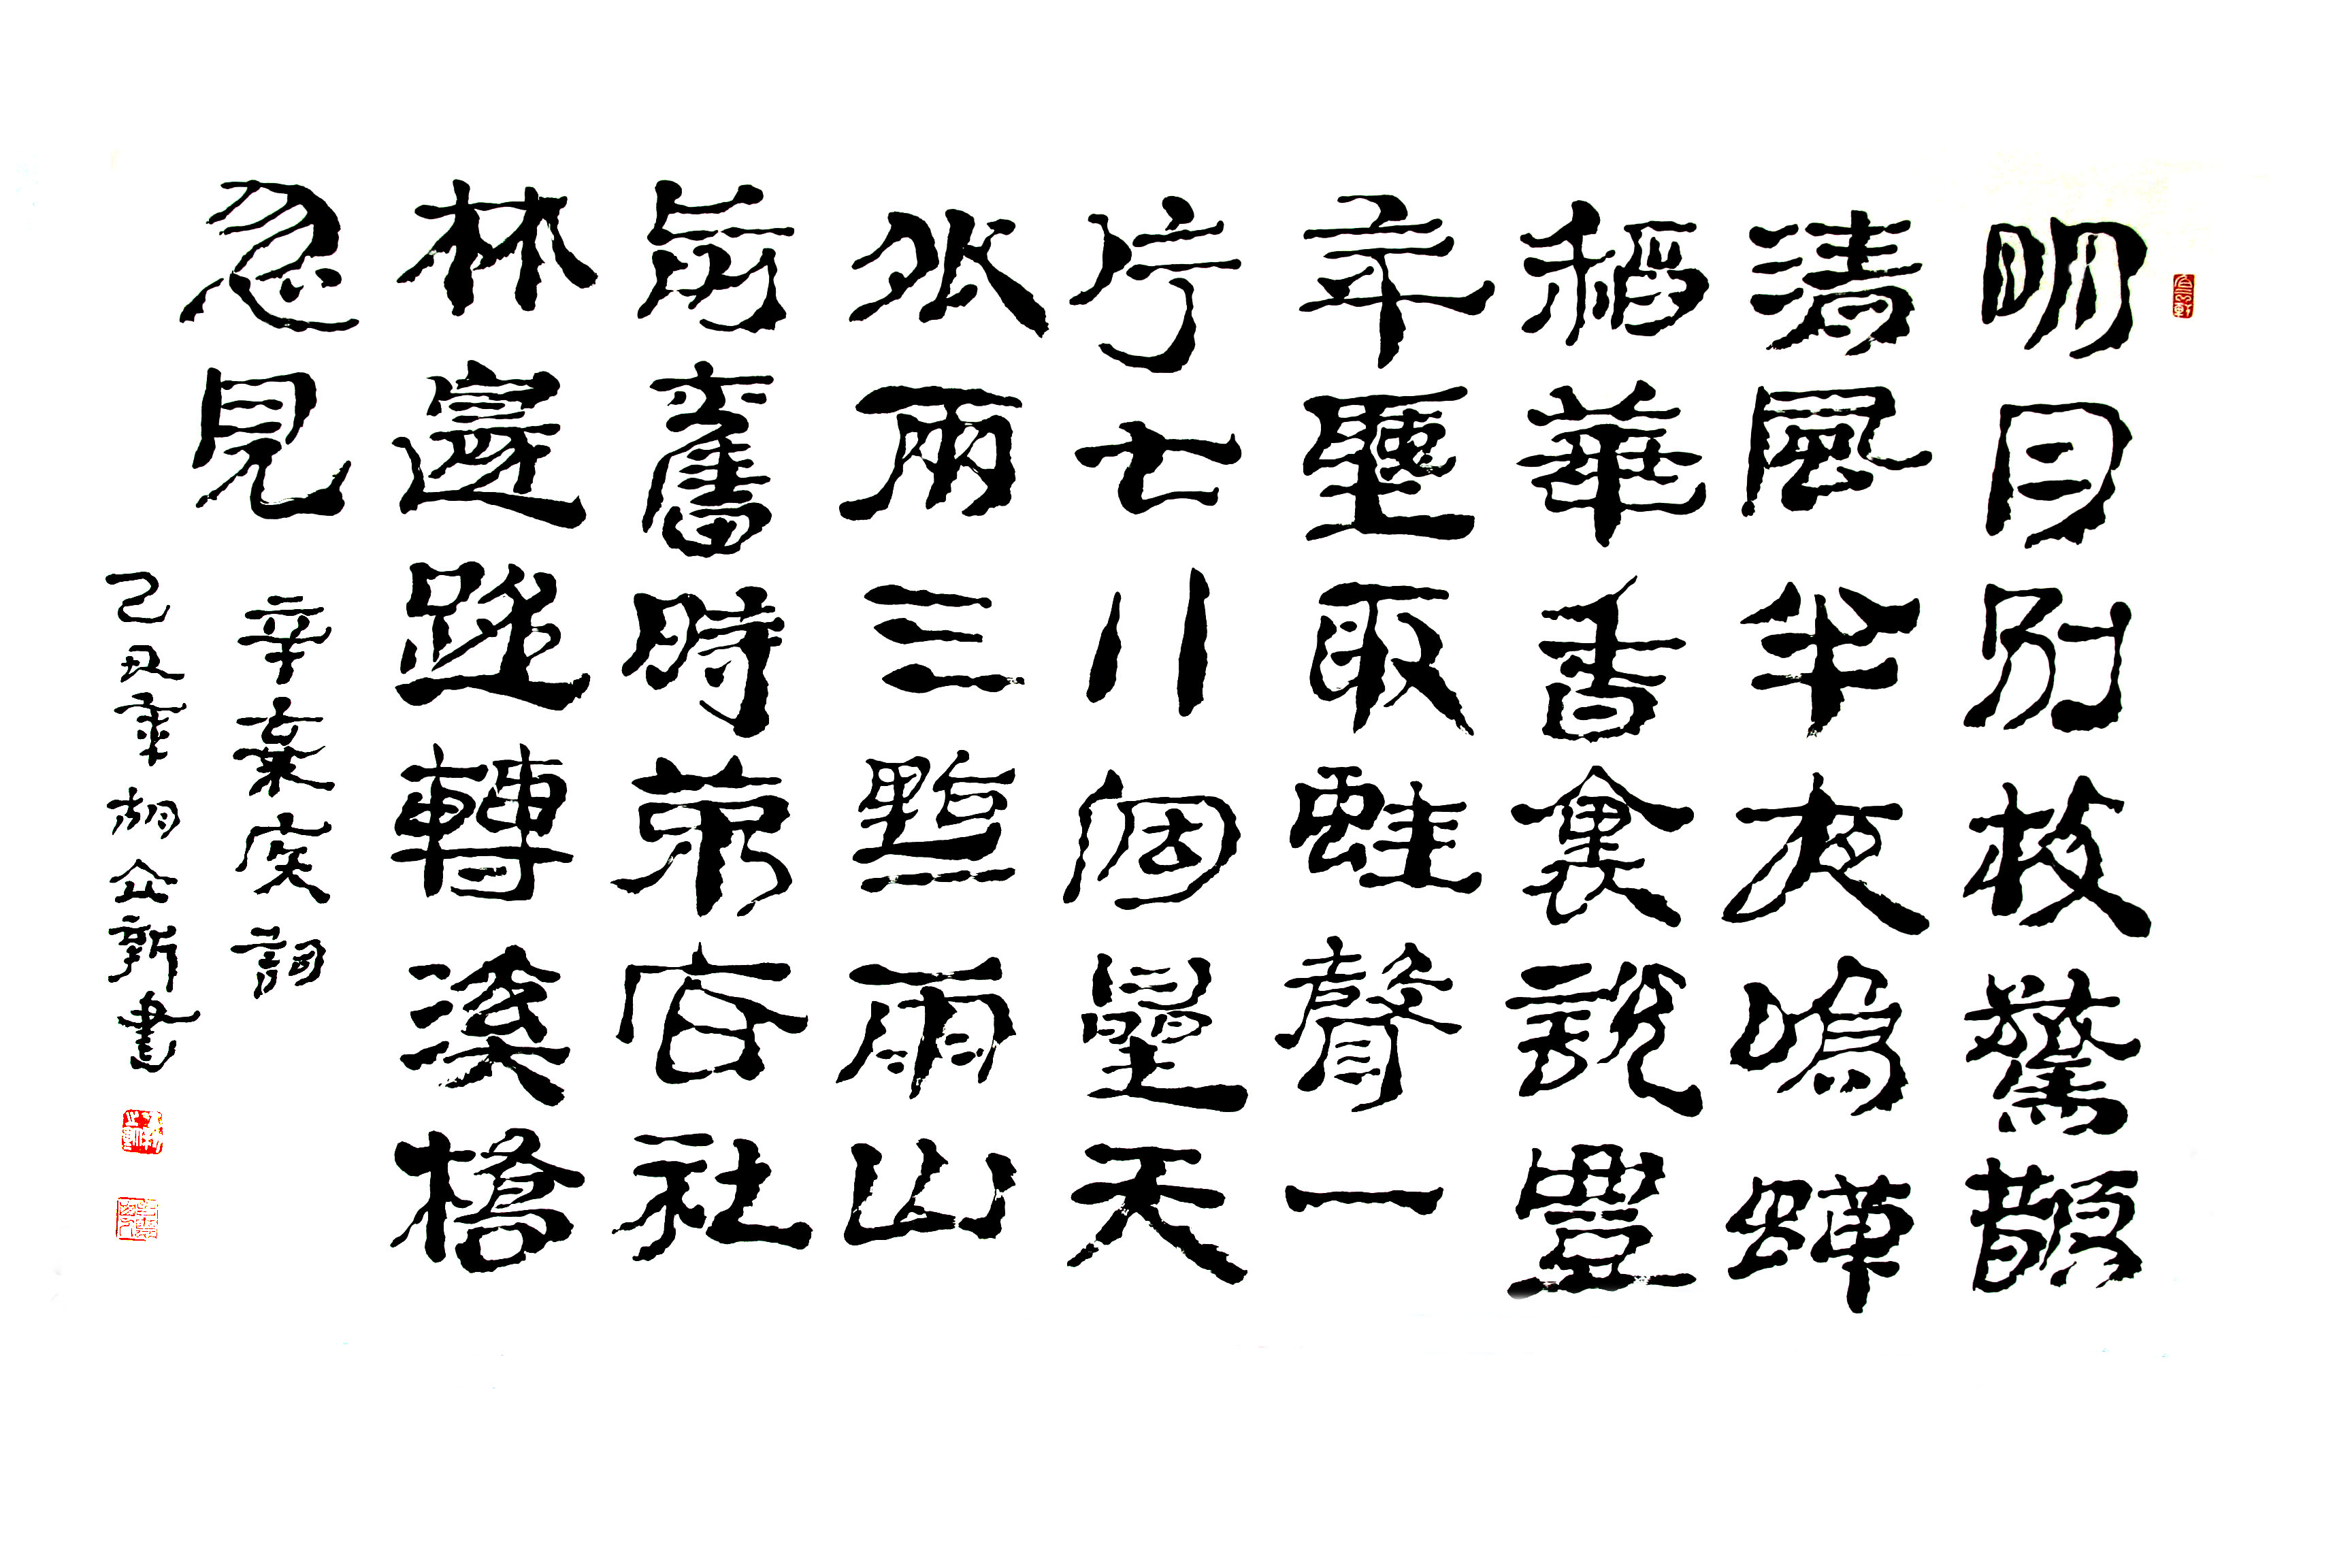 明月別枝驚鵲
清風半夜鳴蟬
稻華香裏說豐
年聽取蛙聲一
片七八個星天
外兩三點雨山
前舊時茅店社
林邊路轉溪橋
忽見
辛棄疾詞
己丑年胡企新書